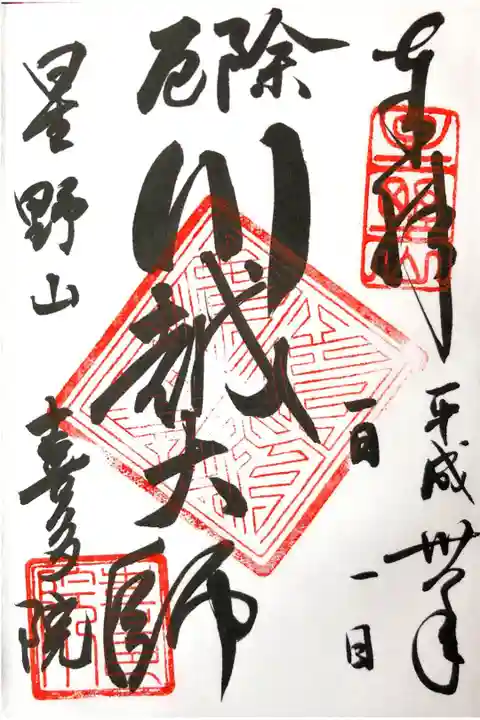 奉拝
平成卅年
一月
一日
厄除
川越大師
星野山
喜多院